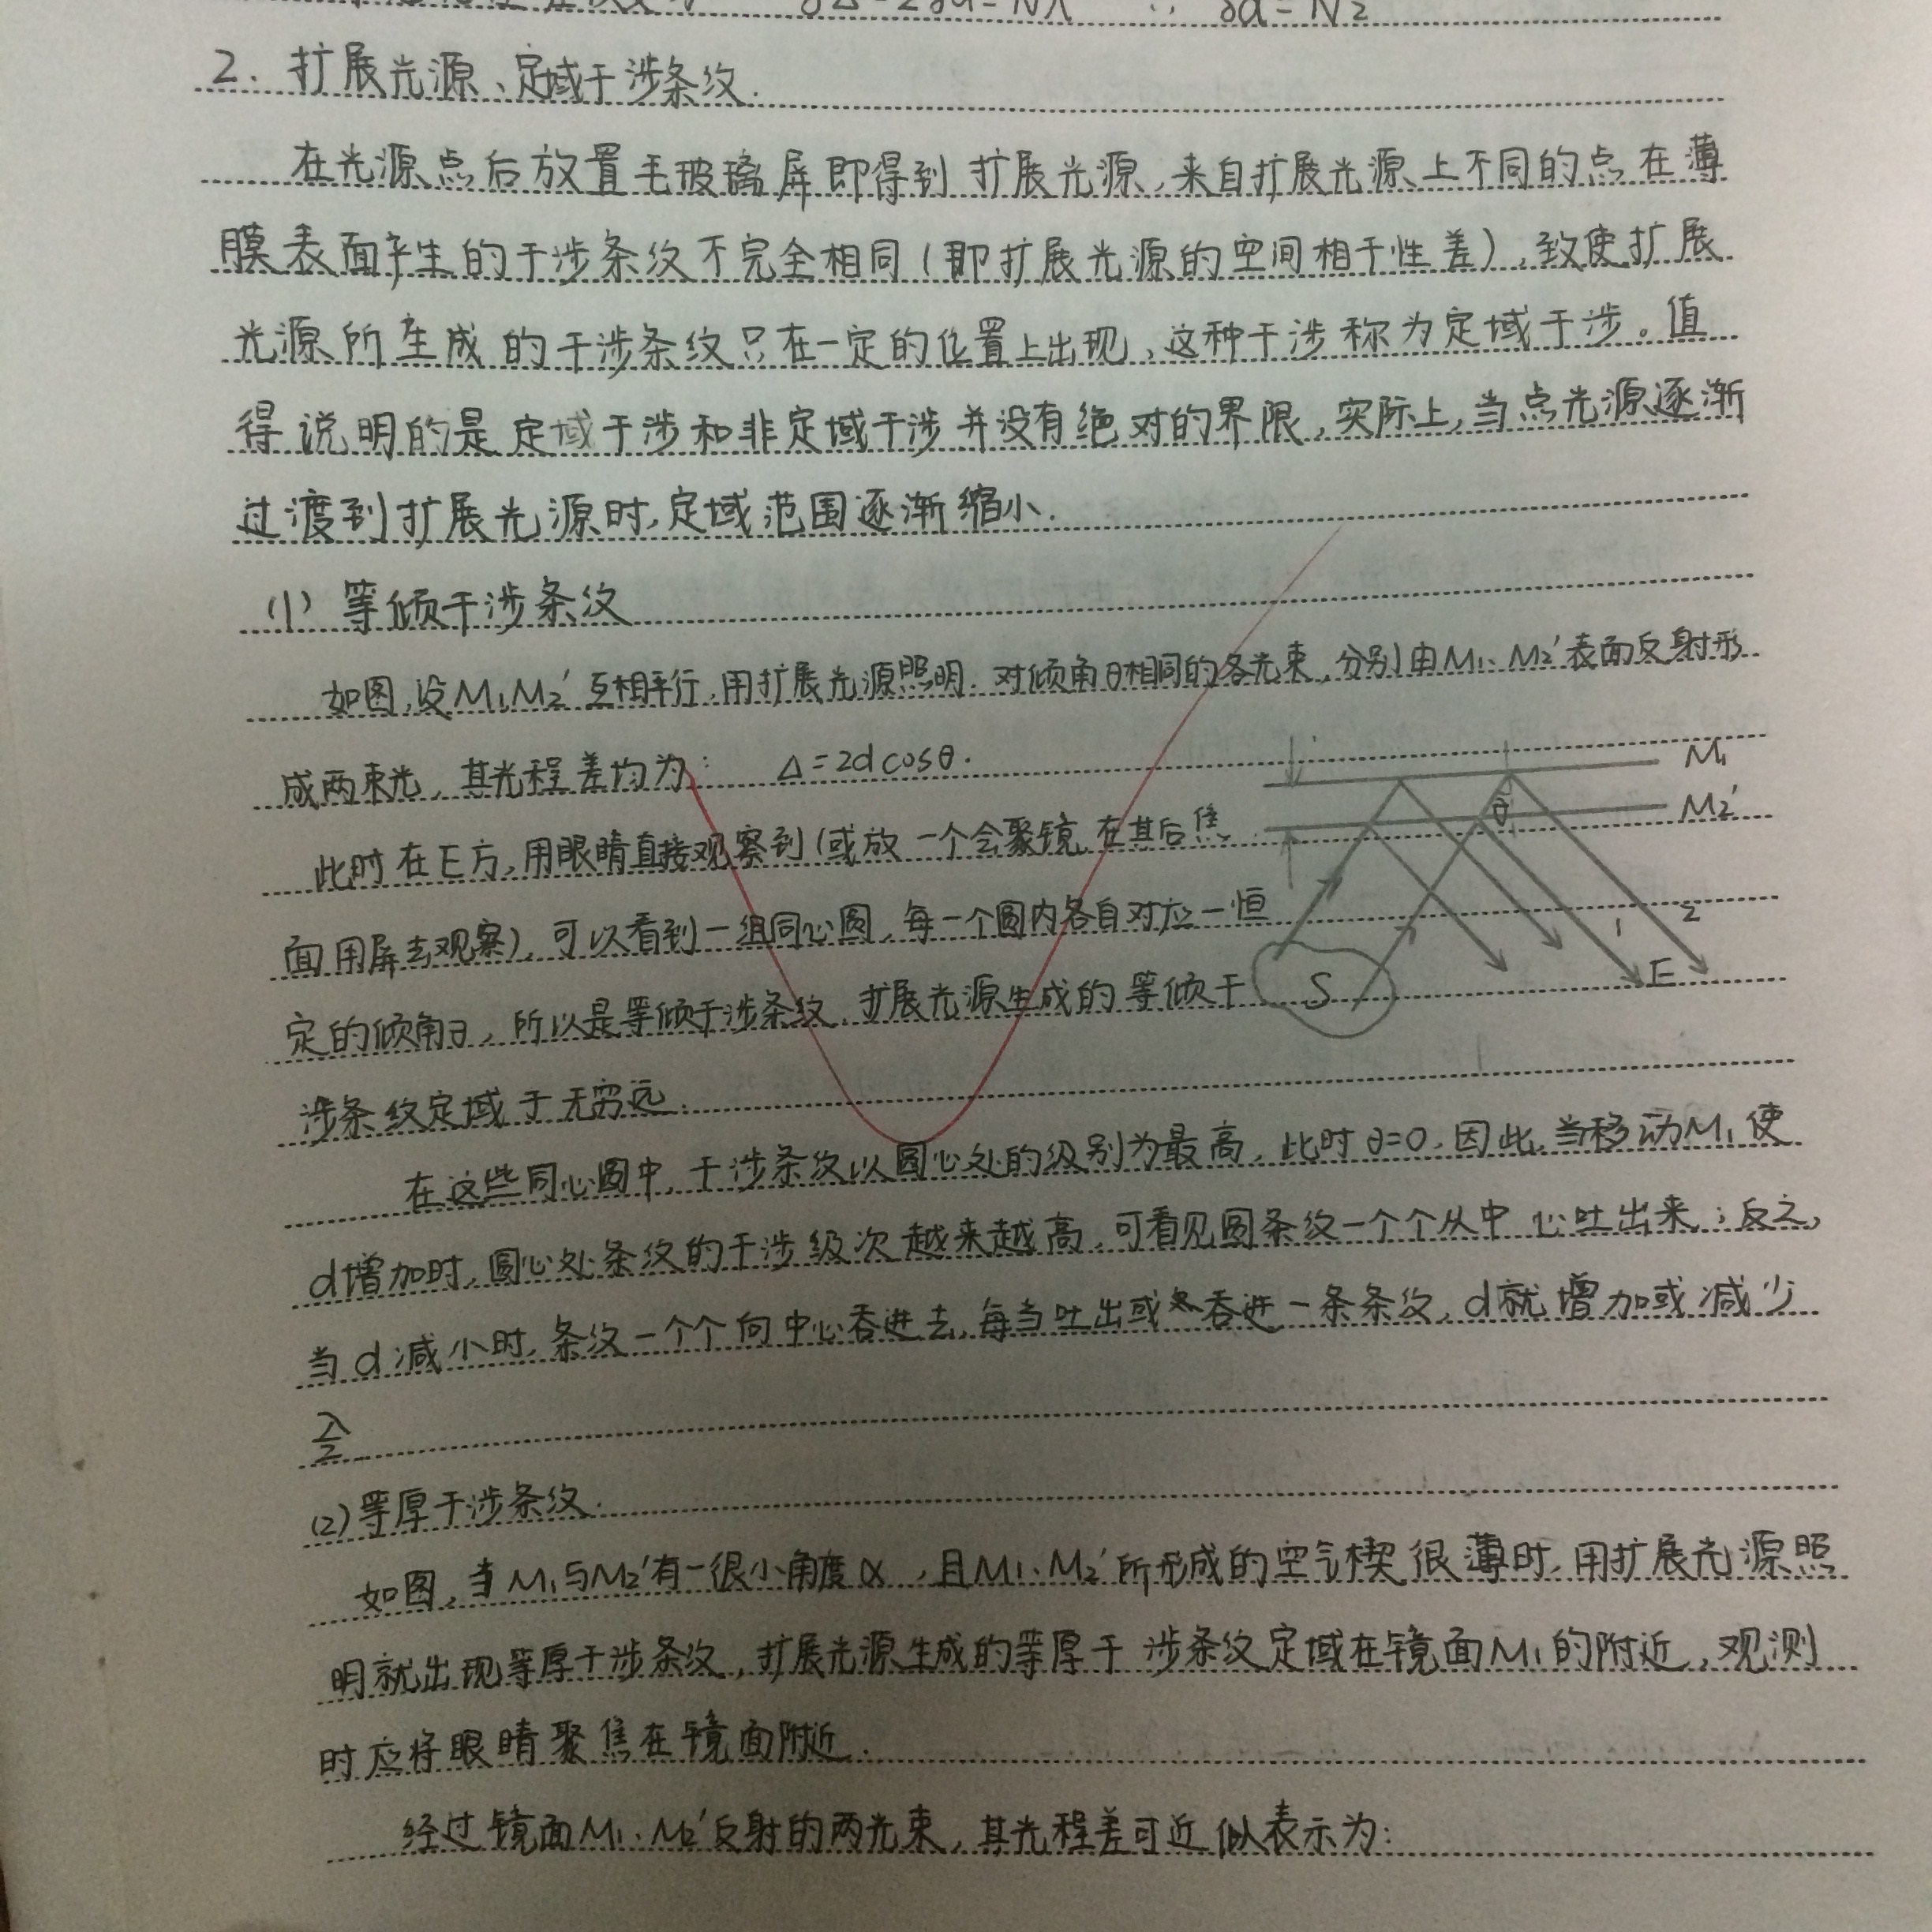 δΔ=2δd=Nλ ∴ δd=Nλ/2
2. 扩展光源、定域干涉条纹.
在光源点后放置毛玻璃屏即得到扩展光源,来自扩展光源上不同的点在薄
膜表面产生的干涉条纹不完全相同(即扩展光源的空间相干性差),致使扩展
光源所生成的干涉条纹只在一定的位置上出现,这种干涉称为定域干涉。值
得说明的是定域干涉和非定域干涉并没有绝对的界限,实际上,当点光源逐渐
过渡到扩展光源时,定域范围逐渐缩小.
(1) 等倾干涉条纹
如图,设M₁M₂′互相平行,用扩展光源照明.对倾角θ相同的各光束,分别由M₁、M₂′表面反射形
成两束光,其光程差均为: Δ=2dcosθ.
此时在E方,用眼睛直接观察到(或放一个会聚镜在其后焦
面用屏去观察),可以看到一组同心圆,每一个圆内各自对应一恒
定的倾角θ,所以是等倾干涉条纹.扩展光源生成的等倾干
涉条纹定域于无穷远.
M₁
M₂′
θ
1
2
S
E
在这些同心圆中,干涉条纹以圆心处的级别为最高,此时θ=0.因此,当移动M₁使
d增加时,圆心处条纹的干涉级次越来越高,可看见圆条纹一个个从中心吐出来;反之,
当d减小时,条纹一个个向中心吞进去,每当吐出或吞进一条条纹,d就增加或减少
λ/2
(2)等厚干涉条纹.
如图,当M₁与M₂′有一很小角度α,且M₁、M₂′所形成的空气楔很薄时,用扩展光源照
明就出现等厚干涉条纹,扩展光源生成的等厚干涉条纹定域在镜面M₁的附近,观测
时应将眼睛聚焦在镜面附近.
经过镜面M₁、M₂′反射的两光束,其光程差可近似表示为: